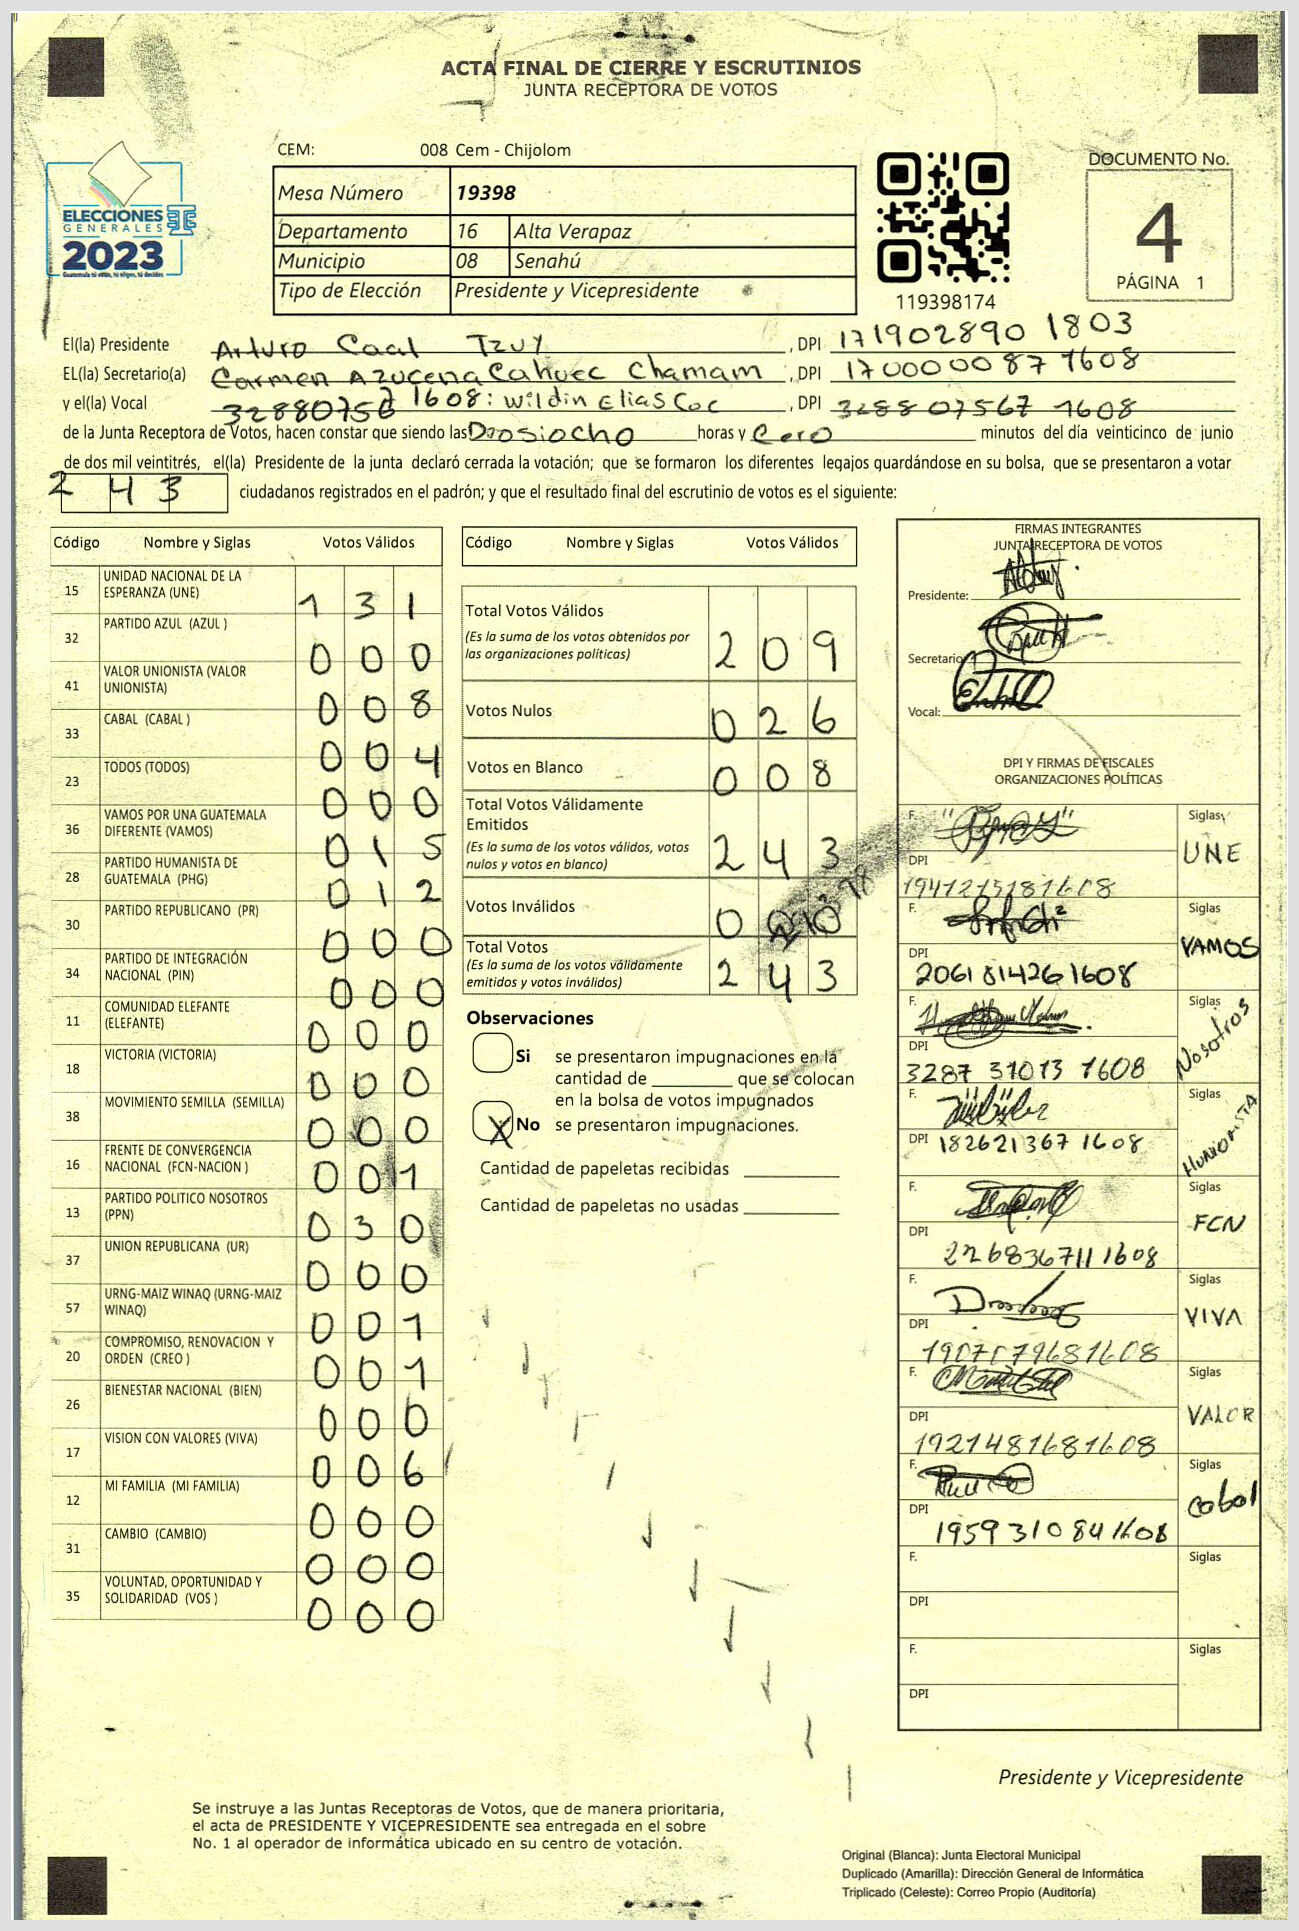 ACTA FINAL DE CIERRE Y ESCRUTINIOS
JUNTA RECEPTORA DE VOTOS
CEM: 008 Cem - Chijolom
DOCUMENTO No.
4
PÁGINA 1
ELECCIONES
GENERALES
2023
Mesa Número 19398
Departamento 16 Alta Verapaz
Municipio 08 Senahú
Tipo de Elección Presidente y Vicepresidente
119398174
El(la) Presidente Arturo Caal Tzuy, DPI 171902890 1803
EL(la) Secretario(a) Carmen Azucena Cahuec Chamam, DPI 170000087 1608
y el(la) Vocal 328807567 1608: Wildin Elias Coc, DPI 328807567 1608
de la Junta Receptora de Votos, hacen constar que siendo las Dosiocho horas y Cero minutos del día veinticinco de junio
de dos mil veintitrés, el(la) Presidente de la junta declaró cerrada la votación; que se formaron los diferentes legajos guardándose en su bolsa, que se presentaron a votar
243 ciudadanos registrados en el padrón; y que el resultado final del escrutinio de votos es el siguiente:
Código Nombre y Siglas Votos Válidos
15 UNIDAD NACIONAL DE LA ESPERANZA (UNE) 1 3 1
32 PARTIDO AZUL (AZUL ) 0 0 0
41 VALOR UNIONISTA (VALOR UNIONISTA) 0 0 8
33 CABAL (CABAL ) 0 0 4
23 TODOS (TODOS) 0 0 0
36 VAMOS POR UNA GUATEMALA DIFERENTE (VAMOS) 0 1 5
28 PARTIDO HUMANISTA DE GUATEMALA (PHG) 0 1 2
30 PARTIDO REPUBLICANO (PR) 0 0 0
34 PARTIDO DE INTEGRACIÓN NACIONAL (PIN) 0 0 0
11 COMUNIDAD ELEFANTE (ELEFANTE) 0 0 0
18 VICTORIA (VICTORIA) 0 0 0
38 MOVIMIENTO SEMILLA (SEMILLA) 0 0 0
16 FRENTE DE CONVERGENCIA NACIONAL (FCN-NACION ) 0 0 1
13 PARTIDO POLITICO NOSOTROS (PPN) 0 3 0
37 UNION REPUBLICANA (UR) 0 0 0
57 URNG-MAIZ WINAQ (URNG-MAIZ WINAQ) 0 0 1
20 COMPROMISO, RENOVACION Y ORDEN (CREO ) 0 0 1
26 BIENESTAR NACIONAL (BIEN) 0 0 0
17 VISION CON VALORES (VIVA) 0 0 6
12 MI FAMILIA (MI FAMILIA) 0 0 0
31 CAMBIO (CAMBIO) 0 0 0
35 VOLUNTAD, OPORTUNIDAD Y SOLIDARIDAD (VOS ) 0 0 0
Código Nombre y Siglas Votos Válidos
Total Votos Válidos 2 0 9
(Es la suma de los votos obtenidos por
las organizaciones políticas)
Votos Nulos 0 2 6
Votos en Blanco 0 0 8
Total Votos Válidamente
Emitidos 2 4 3
(Es la suma de los votos válidos, votos
nulos y votos en blanco)
Votos Inválidos 0
Total Votos 2 4 3
(Es la suma de los votos válidamente
emitidos y votos inválidos)
Observaciones
Si se presentaron impugnaciones en la
cantidad de ________ que se colocan
en la bolsa de votos impugnados
X No se presentaron impugnaciones.
Cantidad de papeletas recibidas
Cantidad de papeletas no usadas
FIRMAS INTEGRANTES
JUNTA RECEPTORA DE VOTOS
Presidente:
Secretario
Vocal:
DPI Y FIRMAS DE FISCALES
ORGANIZACIONES POLÍTICAS
F. Siglas UNE
DPI 1941215181608
F. Siglas VAMOS
DPI 2061814261608
F. Siglas Nosotros
DPI 3287 31013 1608
F. Siglas HUNIONISTA
DPI 182621367 1608
F. Siglas FCN
DPI 226836711 1608
F. Siglas VIVA
DPI 1907079681608
F. Siglas VALOR
DPI 1921481681608
F. Siglas cabal
DPI 1959310841608
F. Siglas
DPI
F. Siglas
DPI
Presidente y Vicepresidente
Se instruye a las Juntas Receptoras de Votos, que de manera prioritaria,
el acta de PRESIDENTE Y VICEPRESIDENTE sea entregada en el sobre
No. 1 al operador de informática ubicado en su centro de votación.
Original (Blanca): Junta Electoral Municipal
Duplicado (Amarilla): Dirección General de Informática
Triplicado (Celeste): Correo Propio (Auditoría)